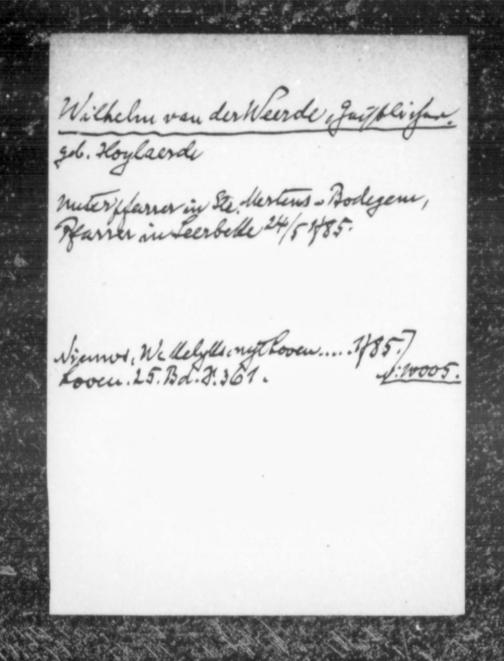 Wilhelm van der Weerde, Geistlicher.
geb. Hoylaerde
Unterpfarrer in Ste. Mertens-Bodegem,
Pfarrer in Leerbeke 24/5 1785.
Nieuws, Loven.....1785.
Loven. 25. Bd. S. 361.